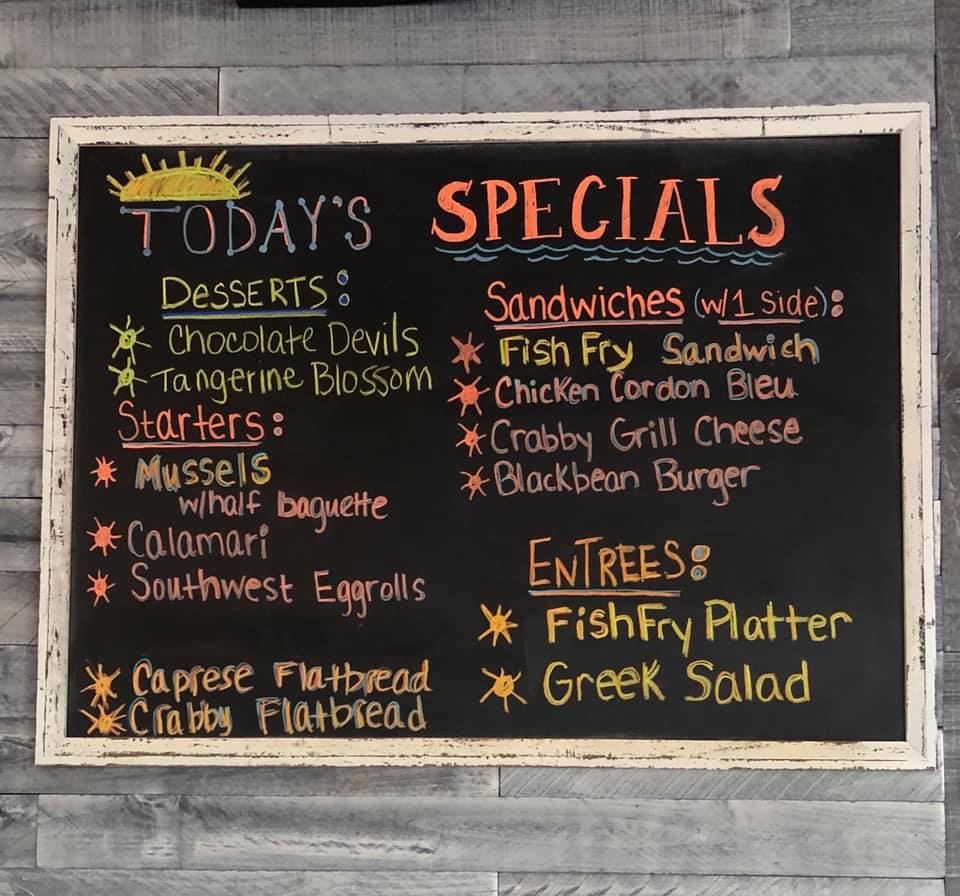 TODAY'S SPECIALS
DESSERTS:
Chocolate Devils
Tangerine Blossom
Starters:
Mussels
w/half baguette
Calamari
Southwest Eggrolls
Caprese Flatbread
Crabby Flatbread
Sandwiches (w/1 Side):
Fish Fry Sandwich
Chicken Cordon Bleu
Crabby Grill Cheese
Blackbean Burger
ENTREES:
Fish Fry Platter
Greek Salad